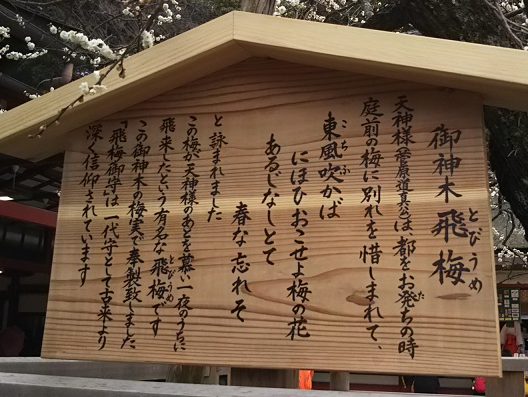 御神木飛梅
とびうめ
天神様(菅原道真公)は都をお発ちの時
た
庭前の梅に別れを惜しまれて、
東風吹かば
こちふ
にほひおこせよ梅の花
あるじなしとて
春な忘れそ
と詠まれました
この梅が天神様のあとを慕い一夜のうちに
飛来したという有名な飛梅です
とびうめ
この御神木の梅実で奉製致しました
「飛梅御守」は一代守として古来より
深く信仰されています